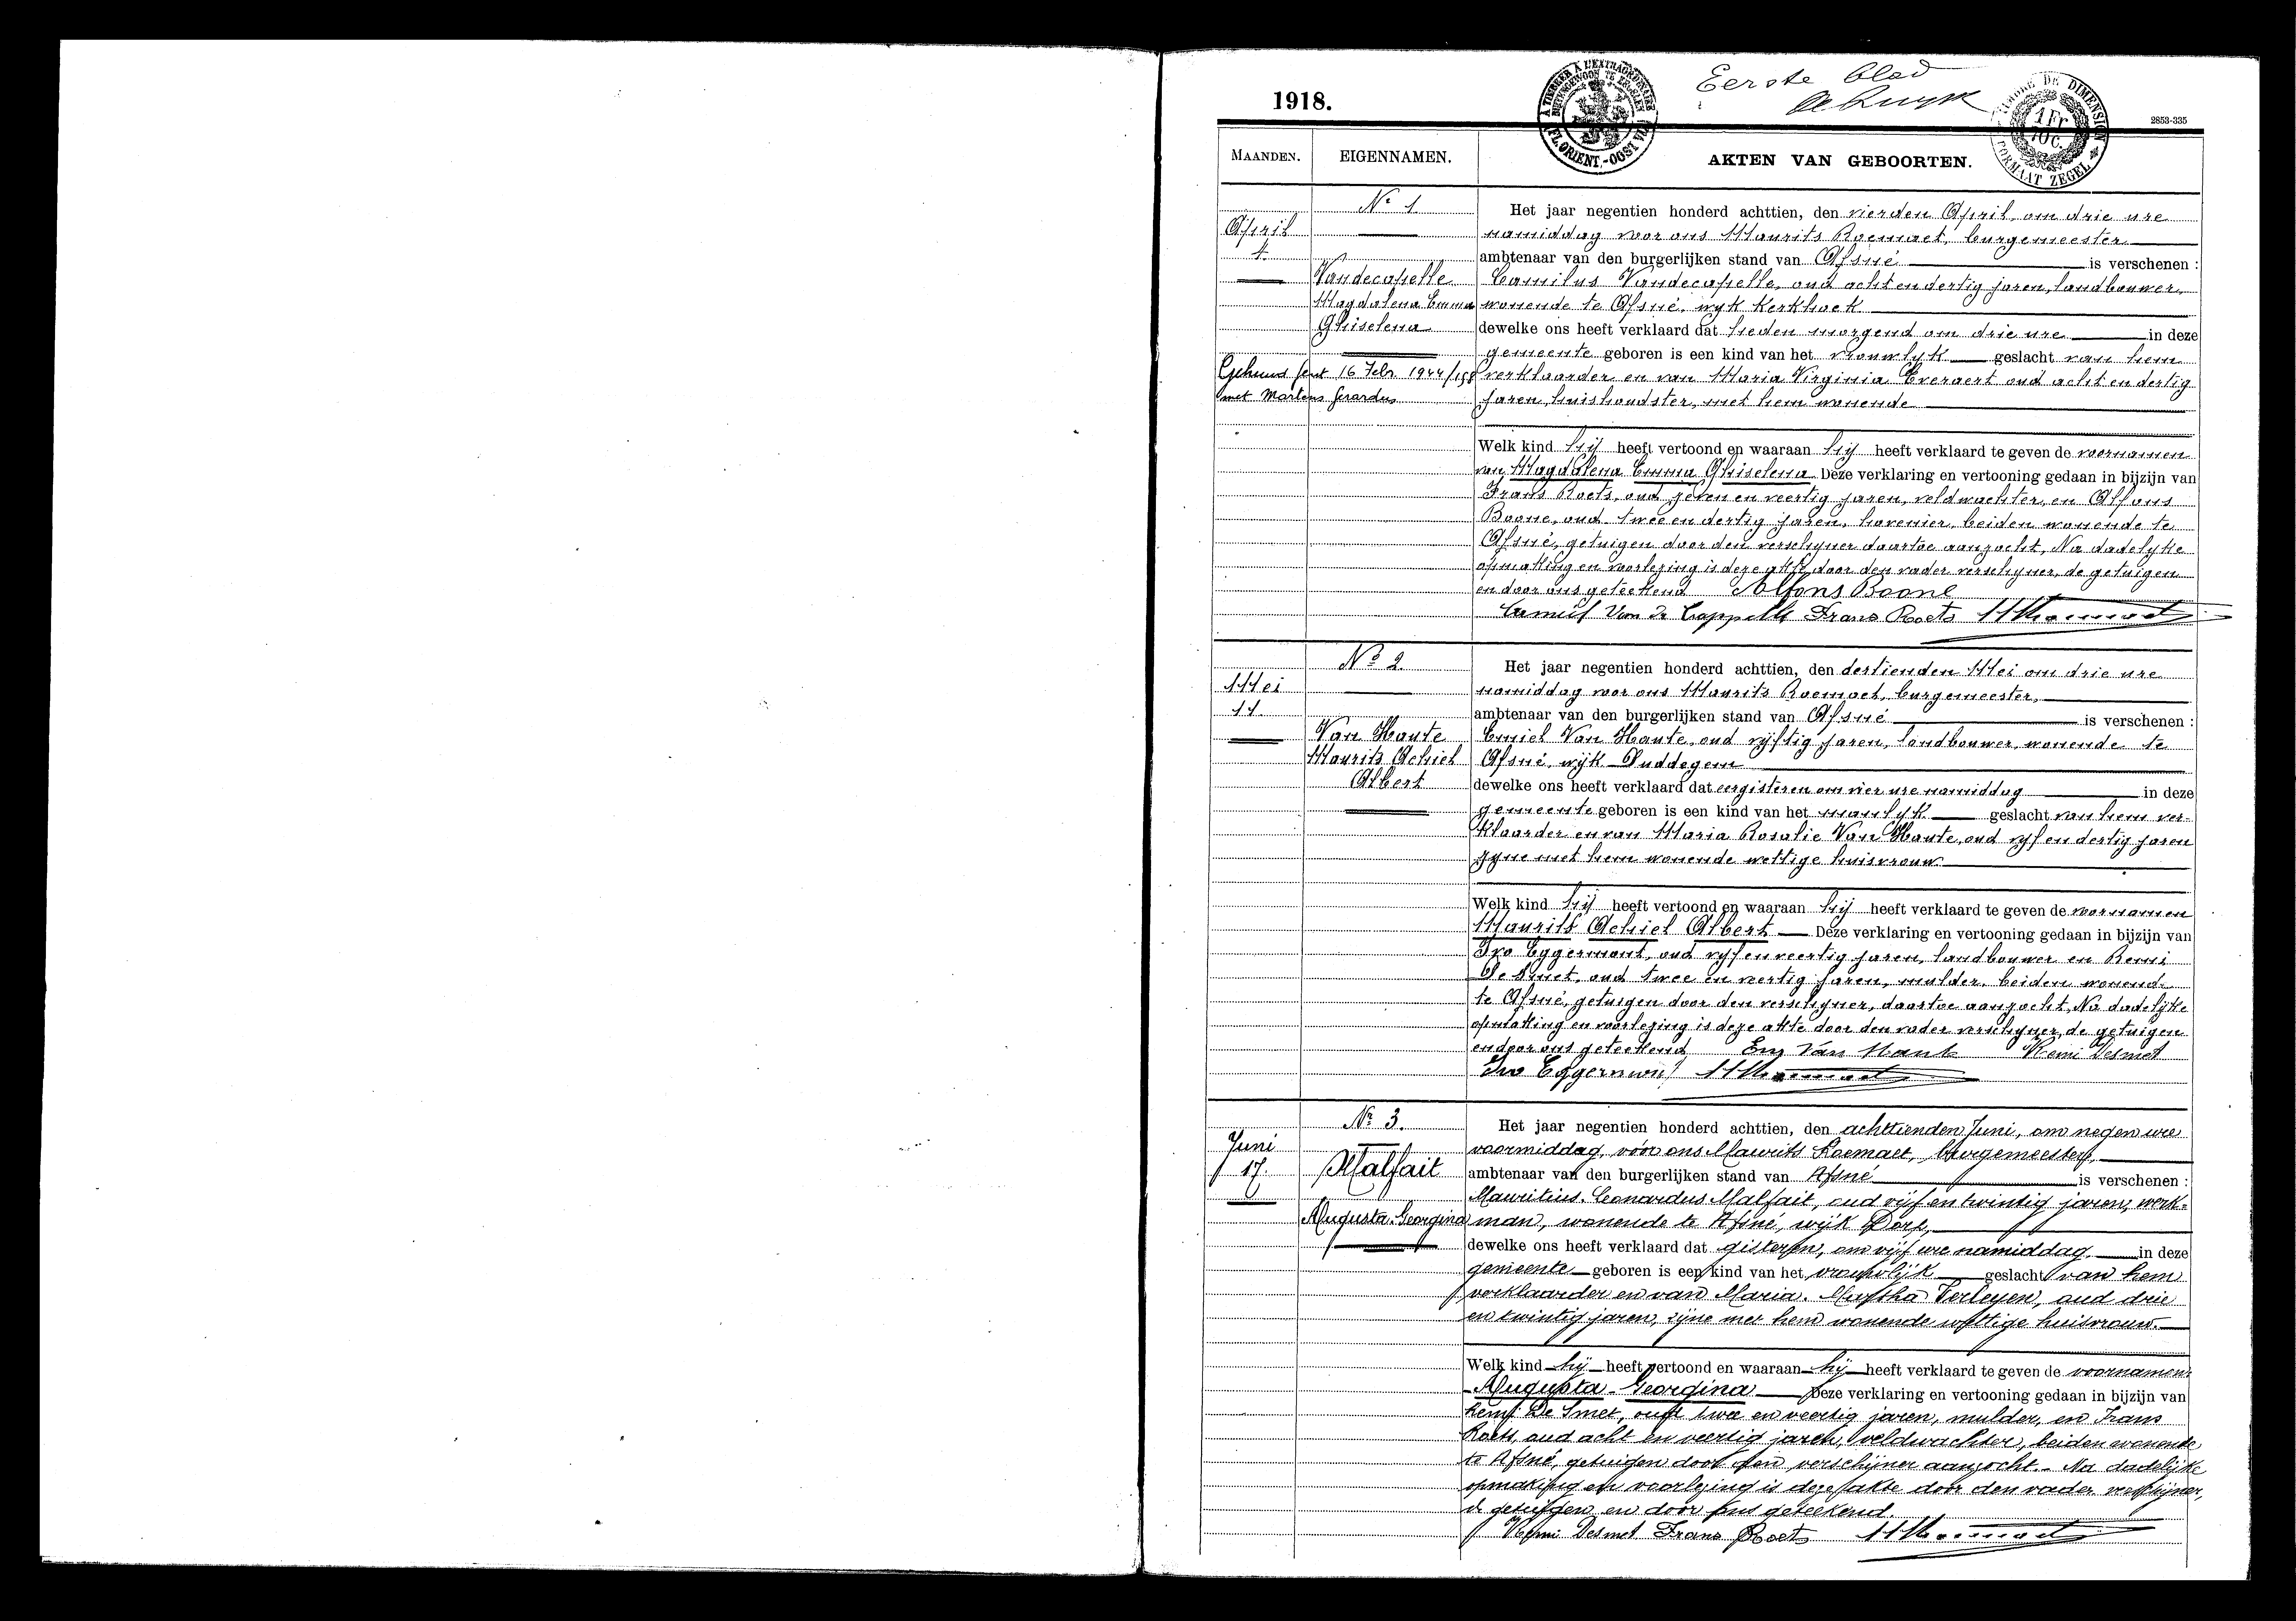 Eerste blad
1918.
A TIMBRER A L'EXTRAORDINAIRE
BUITENGEWOON TE ZEGELEN
FL. ORIENT.-OOST VLA
TIMBRE DE DIMENSION
1 Fr
10c.
FORMAAT ZEGEL
2853-335
MAANDEN. EIGENNAMEN. AKTEN VAN GEBOORTEN.
April
4
Nr 1
Vandecapelle
Magdalena Emma
Ghiselena
Gehuwd 16 Febr. 1944
met Martens Gerardus
Het jaar negentien honderd achttien, den vierden April, om drie ure
namiddag voor ons Maurits Roemaet, burgemeester
ambtenaar van den burgerlijken stand van Afsné is verschenen :
Camilus Vandecapelle, oud acht en dertig jaren, landbouwer,
wonende te Afsné, wyk Kerkhoek
dewelke ons heeft verklaard dat heden morgend om drie ure in deze
gemeente geboren is een kind van het vrouwlyk geslacht van hem
verklaarder en van Maria Virginia Everaert oud acht en dertig
jaren, huishoudster, met hem wonende
Welk kind hij heeft vertoond en waaraan hij heeft verklaard te geven de voornamen
van Magdalena Emma Ghiselena Deze verklaring en vertooning gedaan in bijzijn van
Frans Roets, oud zeven en veertig jaren, veldwachter, en Alfons
Boone, oud twee en dertig jaren, hovenier, beiden wonende te
Afsné, getuigen door den verschyner daartoe aanzocht, Na dadelyke
opmaking en voorlezing is deze akte door den vader verschyner, de getuigen
en door ons geteekend Alfons Boone
Camiel Van de Cappelle Frans Roets MRoemaet
Mei
11
No 2
Van Haute
Maurits Achiel
Albert
Het jaar negentien honderd achttien, den dertienden Mei om drie ure
namiddag voor ons Maurits Roemaet, burgemeester,
ambtenaar van den burgerlijken stand van Afsné is verschenen :
Emiel Van Haute, oud vyftig jaren, landbouwer, wonende te
Afsné, wyk Duddegem
dewelke ons heeft verklaard dat eergisteren om vier ure namiddag in deze
gemeente geboren is een kind van het manlyk geslacht van hem ver-
klaarder en van Maria Rosalie Van Haute, oud vyf en dertig jaren
zyne met hem wonende wettige huisvrouw
Welk kind hij heeft vertoond en waaraan hij heeft verklaard te geven de voornamen
Maurits Achiel Albert Deze verklaring en vertooning gedaan in bijzijn van
Ivo Eggermont, oud vyf en veertig jaren, landbouwer en Remi
De Smet, oud twee en veertig jaren, mulder, beiden wonend
te Afsné, getuigen door den verschyner, daartoe aanzocht, Na dadelyke
opmaking en voorlezing is deze akte door den vader verschyner, de getuigen
en door ons geteekend Em Van Haute Remi Desmet
Ivo Eggermont MRoemaet
Juni
17.
Nr 3.
Malfait
Augusta-Georgina
Het jaar negentien honderd achttien, den achttienden Juni, om negen ure
voormiddag, vóór ons Maurits Roemaet, burgemeester,
ambtenaar van den burgerlijken stand van Afsné is verschenen :
Mauritius-Leonardus Malfait, oud vijf en twintig jaren, werk-
man, wonende te Afsné, wijk Dorp,
dewelke ons heeft verklaard dat gisteren, om vijf ure namiddag in deze
gemeente geboren is een kind van het vrouwlijk geslacht van hem
verklaarder en van Maria-Martha Verleyen, oud drie
en twintig jaren, zijne met hem wonende wettige huisvrouw.
Welk kind hij heeft vertoond en waaraan hij heeft verklaard te geven de voornamen:
Augusta-Georgina Deze verklaring en vertooning gedaan in bijzijn van
Remi De Smet, oud twee en veertig jaren, mulder, en Frans
Roets, oud acht en veertig jaren, veldwachter, beiden wonende
te Afsné, getuigen door den verschijner aanzocht. Na dadelijke
opmaking en voorlezing is deze akte door den vader verschijner,
de getuigen en door ons geteekend.
Remi Desmet Frans Roets MRoemaet